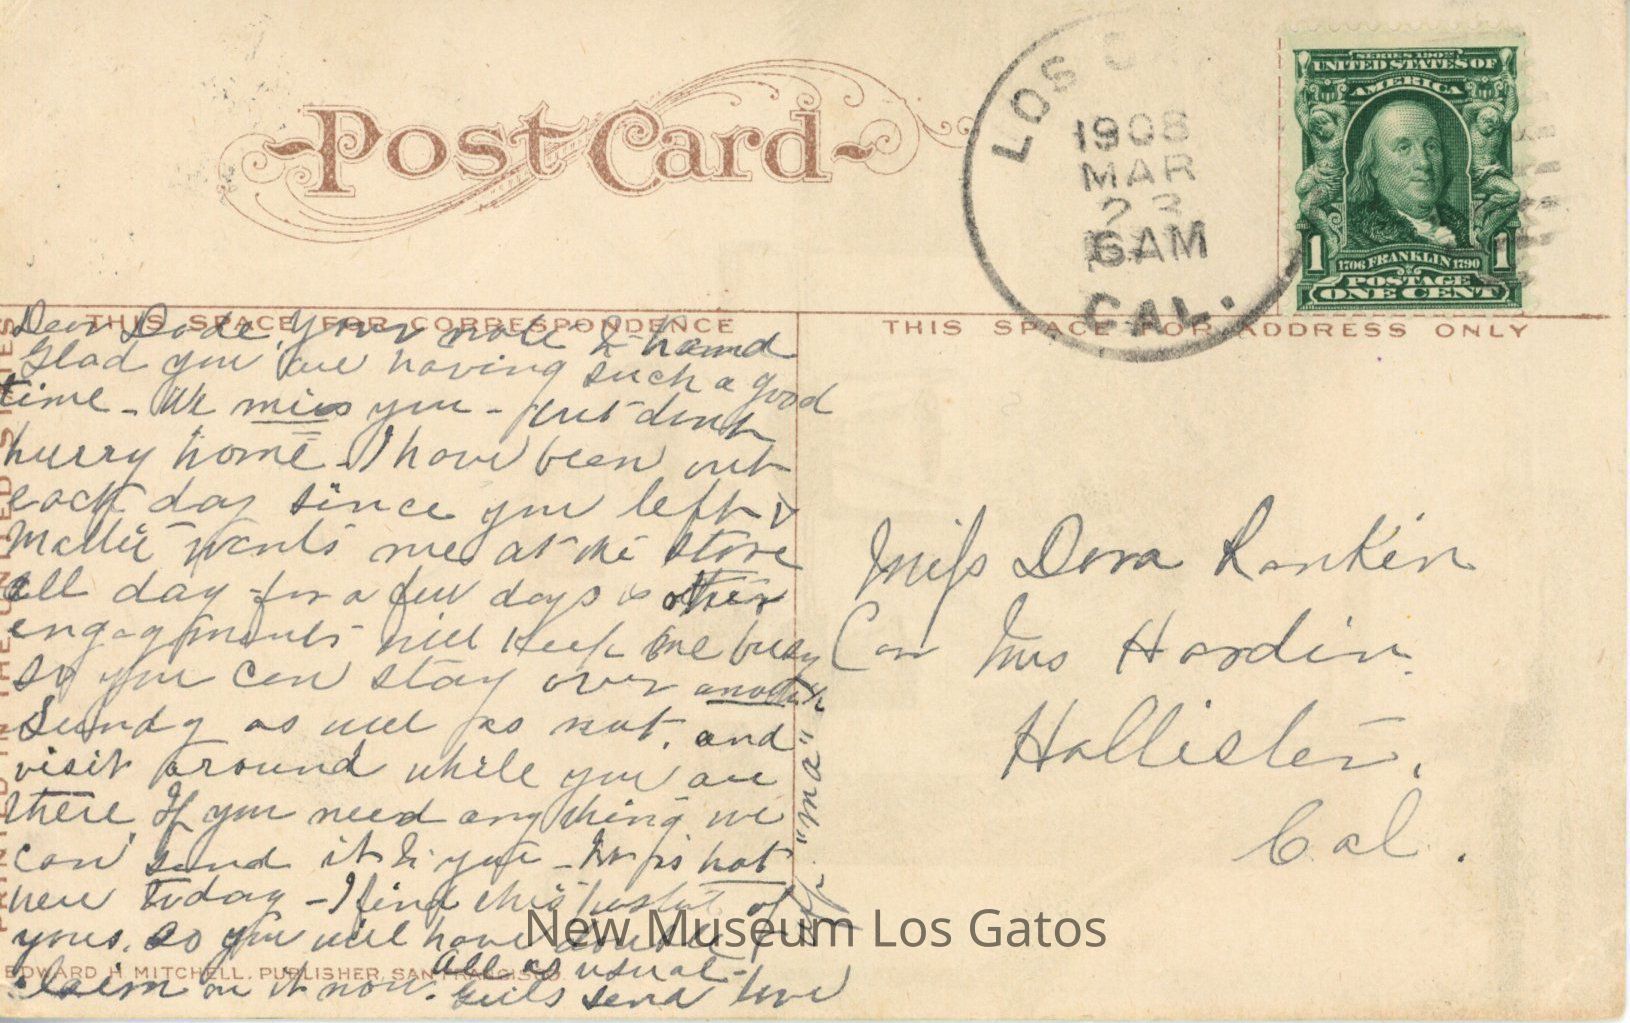 Post Card
LOS
1908
MAR
23
6 AM
CAL.
SERIES 1902
UNITED STATES OF
AMERICA
1 1706 FRANKLIN 1790 1
POSTAGE
ONE CENT
THIS SPACE FOR CORRESPONDENCE
THIS SPACE FOR ADDRESS ONLY
PRINTED IN THE UNITED STATES
Dear Dode, Your note to hand
Glad you are having such a good
time - We miss you - but dont
hurry home - I have been out
each day since you left
Mattie wants me at the store
all day for a few days & other
engagements will keep me busy
so you can stay over another
Sunday as well as not. and
visit around while you are
there. If you need any thing we
can send it to you - is hot
here today - I find this of
yours. so you will have double
claim on it now. All as usual -
Girls send love
"Ma"
Miss Dora Rankin
Care Mrs Hardin.
Hollister,
Cal.
EDWARD H. MITCHELL, PUBLISHER, SAN FRANCISCO
New Museum Los Gatos